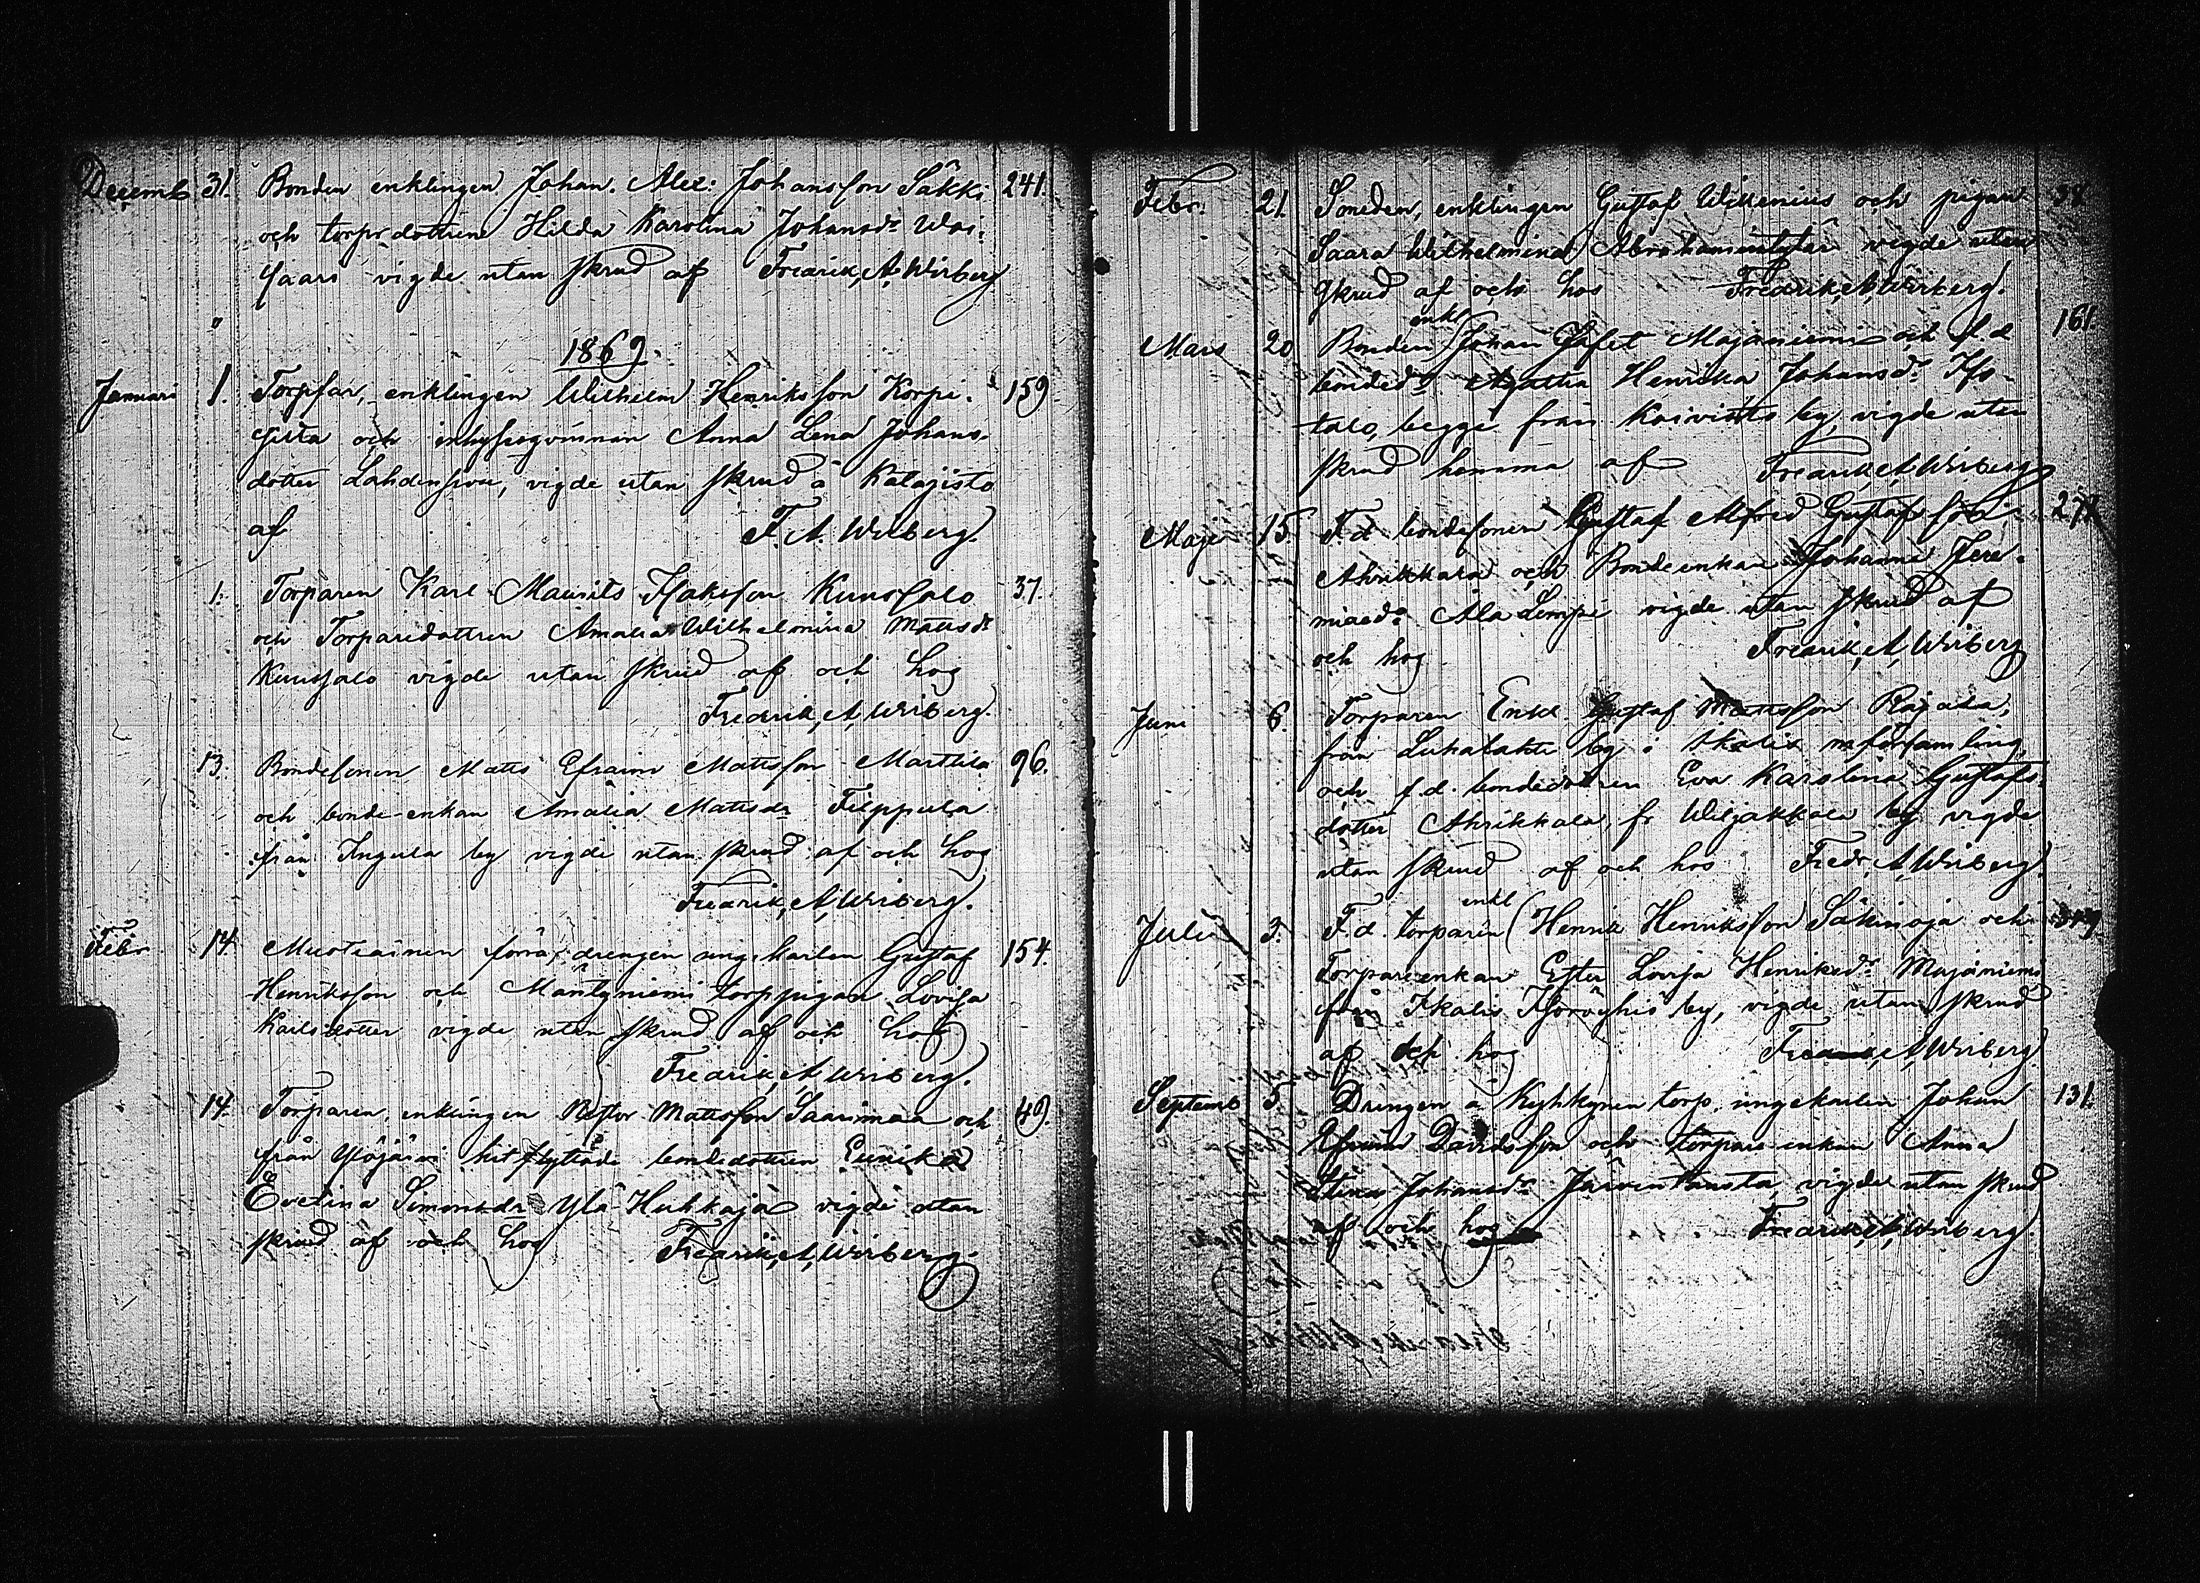 Decemb 31. Bonden enklingen Johan. Alex: Johansson Säkki 241.
och torpr dottren Hilda Karolina Johansdr Was-
saari vigde utan skrud af Fredrik, A, Wirberg
1869.
Januari 1. Torpfar, enklingen Wilhelm Henriksson Korpi- 159
och inhysesqvinnan Anna Lena Johans-
dotter vigde utan skrud å
af F. A. Wirberg.
1. Torparen Karl Maurits Isaksson Kuussalo 37.
och Torparedottren Amalia Wilhelmina Mattsdr
Kuussalo vigde utan skrud af och hos
Fredrik, A, Wirberg.
13. Bondesonen Matts Efraim Mattsson Marttila 96.
och bonde-enkan Amalia Mattsdr Filppula
från Ingula by vigde utan skrud af och hos
Fredrik, A, Wirberg.
Febr 14. drengen ungkarlen Gustaf 154.
Henriksson och Mäntyniemi torppigan Lovisa
Karlsdotter vigde utan skrud af och hos
Fredrik, A, Wirberg.
14. Torparen, enklingen Nestor Mattsson Saarimaa och 49.
från Ylöjärvi hitflyttade bondedottren
Evelina Simonsdr Ylä-Huhkaja vigde utan
skrud af och hos Fredrik, A, Wirberg.
Febr. 21. Smeden, enklingen Gustaf Willenius och pigan 38
Saara Wilhelmina Abrahamsdotter vigde utan
skrud af och hos Fredrik, A, Wirberg.
enkl
Mars 20 Bonden Johan Jafet Majaniemi och f.d. 161.
bonded: Henrika Johansd:
talo, begge från Koivisto by, vigde utan
skrud hemma af Fredrik, A, Wirberg
Maji 15 F.d. bondesonen Gustaf Alfred Gustafsson
Ahrikkala och Bondeenkan Johanna Jere-
miaed: Ala Lempi vigde utan skrud af
och hos Fredrik, A, Wirberg
Juni 6. Torparen Enkl. Gustaf Mattsson Rajala,
från by i Ikalis mforsamling,
och f.d. bondedottren Eva Karolina Gustafs-
dotter Ahrikkala, fr Wiljakkala by vigde
utan skrud af och hos Fredr, A, Wirberg.
enkl
Juli 3. F.d. torparen Henrik Henriksson Säkinoja och
Torpareenkan Ester Lovisa Henriksd: Majaniemi
från Ikalis by, vigde utan skrud
af och hos Fredrik, A, Wirberg
Septemb 5. Drengen å Kyhkynen torp. ungekarlen Johan 131.
Efraim Davidsson och torpare-enkan Anna
Stina Johansd: Järventausta, vigde utan skrud
af och hos Fredrik, A, Wirberg.